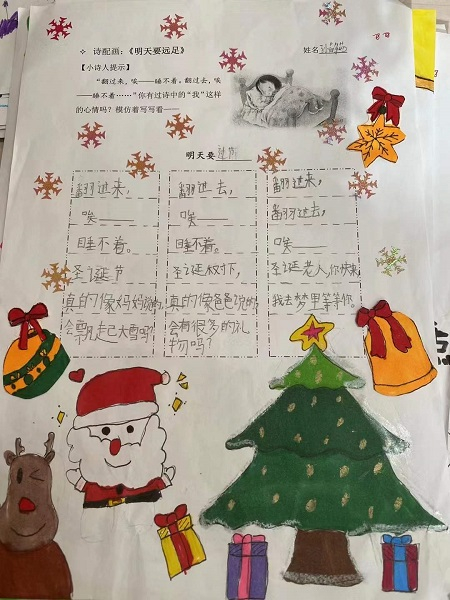 诗配画：《明天要远足》
姓名
【小诗人提示】
“翻过来，唉——睡不着。翻过去，唉
——睡不着……”你有过诗中的“我”这样
的心情吗？模仿着写写看——
明天要
翻过来，
唉——
睡不着。
圣诞节
真的像妈妈说的
会飘起大雪吗？
翻过去，
唉——
睡不着。
圣诞树下，
真的像爸爸说的
会有很多的礼
物吗？
翻过来，
翻过去，
唉——
圣诞老人你快来
我去梦里等等你。